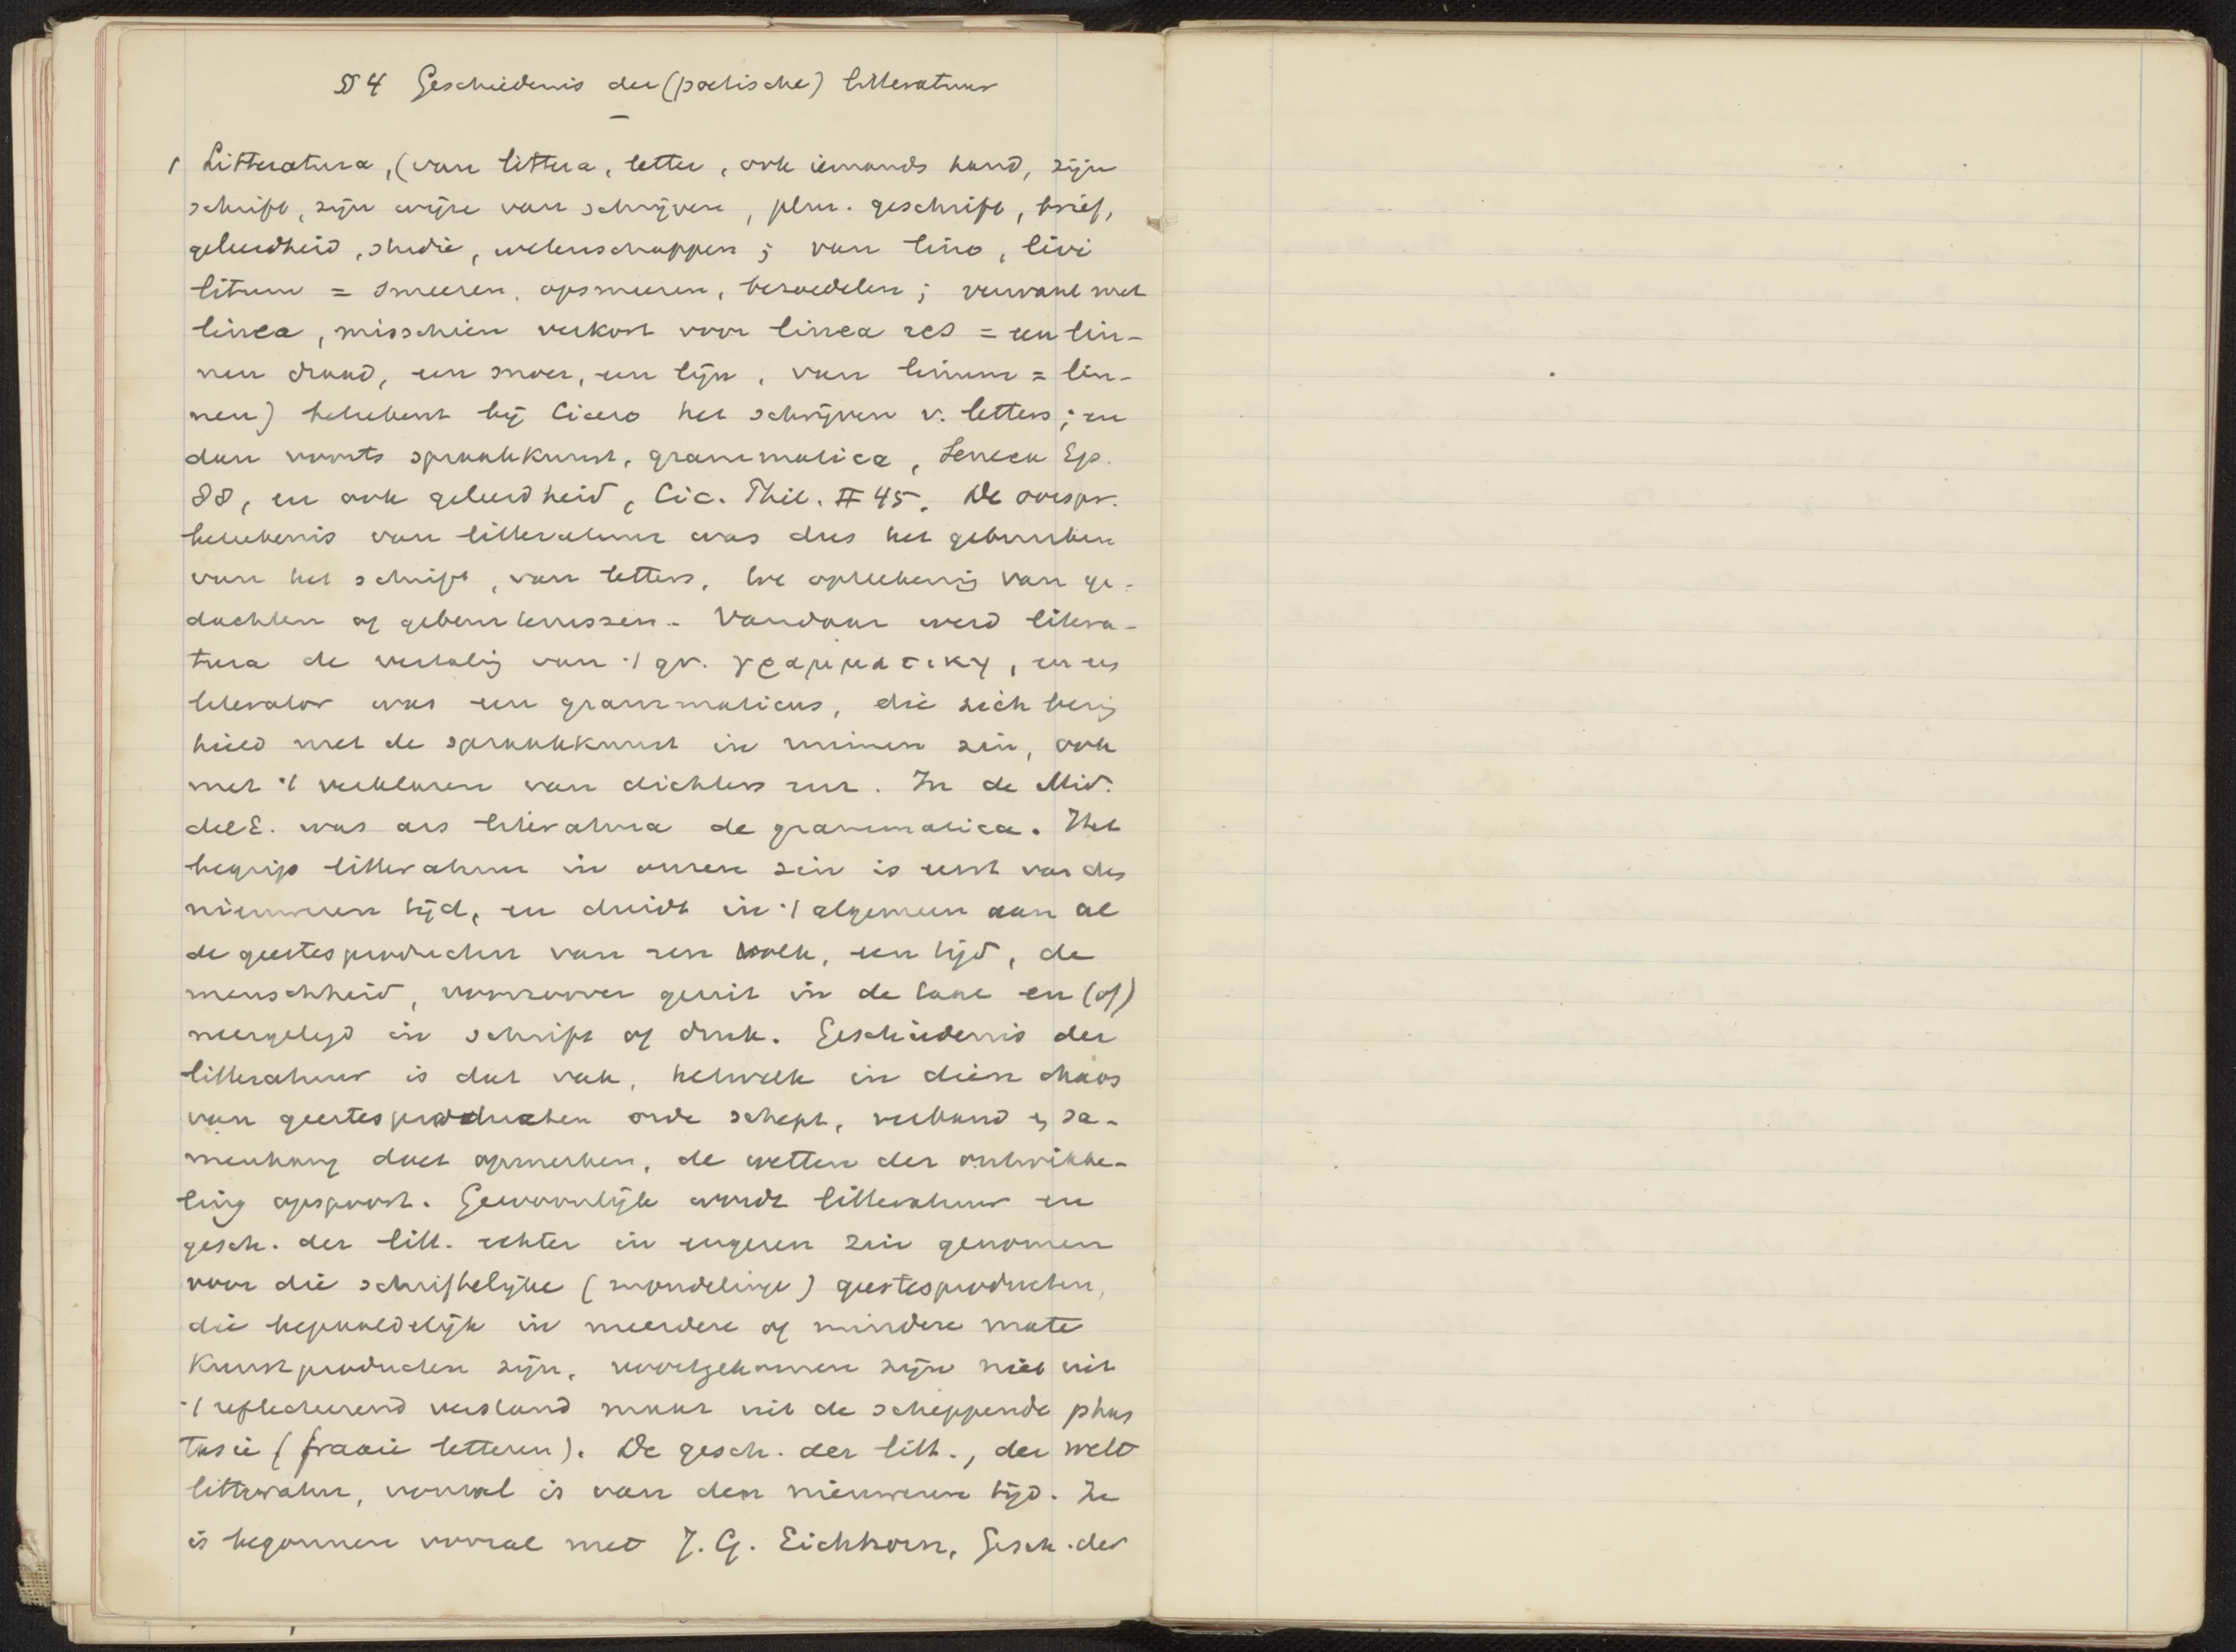 § 4 Geschiedenis der (poetische) litteratuur
1 Litteratura, (van littera, letter, ook iemands hand, zijn
schrift, zijn wijze van schrijven, plur. geschrift, brief,
geleerdheid, studie, wetenschappen; van lino, livi
litum = smeeren, opsmeeren, bezoedelen; verwant met
linea, misschien verkort voor linea res = een lin-
nen draad, een snoer, een lijn, van linum = lin-
nen) beteekent bij Cicero het schrijven v. letters; en
dan voorts spraakkunst, grammatica, Seneca Ep.
88, en ook geleerdheid, Cic. Phil. II 45. De oorspr.
beteekenis van litteratuur was dus het gebruiken
van het schrift, van letters, tot opteekening van ge-
dachten of gebeurtenissen. Vandaar werd litera-
tura de vertaling van 't gr. γραμματικη, en een
literator was een grammaticus, die zich bezig
hield met de spraakkunst in ruimen zin, ook
met 't verklaren van dichters enz. In de Mid-
delE. was ars literatura de grammatica. Het
begrip litteratuur in onzen zin is eerst van den
nieuweren tijd, en duidt in 't algemeen aan al
de geestesproducten van een volk, een tijd, de
menschheid, voorzoover geuit in de taal en (of)
neergelegd in schrift of druk. Geschiedenis der
litteratuur is dat vak, hetwelk in dien chaos
van geestesproducten orde schept, verband en sa-
menhang doet opmerken, de wetten der ontwikke-
ling opspoort. Gewoonlijk wordt litteratuur en
gesch. der litt. echter in engeren zin genomen
voor die schriftelijke (mondelinge) geestesproducten,
die bepaaldelijk in meerdere of mindere mate
kunstproducten zijn, voortgekomen zijn niet uit
't reflecteerend verstand maar uit de scheppende phan
tasie (fraaie letteren). De gesch. der litt., der welt
litteratur, vooral is van den nieuweren tijd. Ze
is begonnen vooral met J. G. Eichhorn, Gesch. der